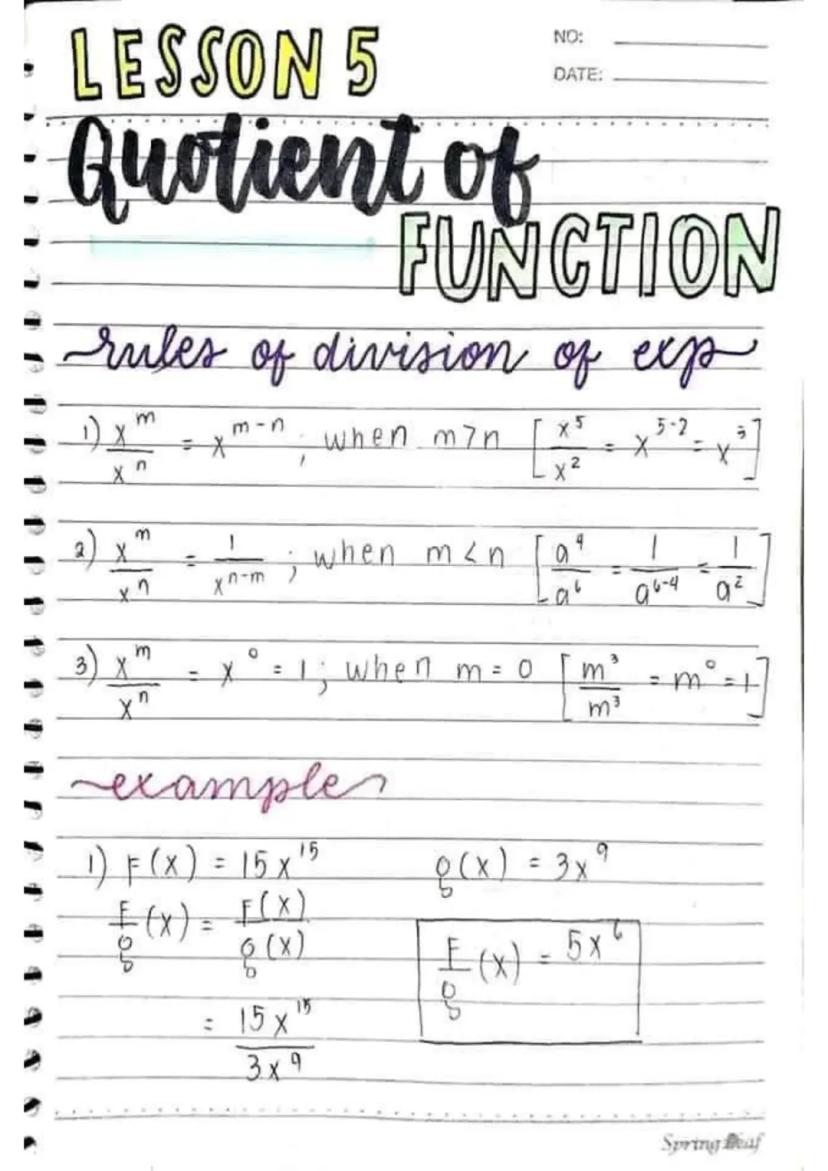 LESSON 5
NO:
DATE:
Quotient of
FUNCTION
rules of division of exp
1) x^m / x^n = x^(m-n) ; when m>n [x^5 / x^2 = x^(5-2) = x^3]
2) x^m / x^n = 1 / x^(n-m) ; when m<n [a^4 / a^6 = 1 / a^(6-4) = 1 / a^2]
3) x^m / x^n = x^0 = 1 ; when m = 0 [m^3 / m^3 = m^0 = 1]
example
1) F(x) = 15x^15 g(x) = 3x^9
F/g (x) = F(x) / g(x)
F/g (x) = 5x^6
= 15x^15 / 3x^9
Spring Leaf